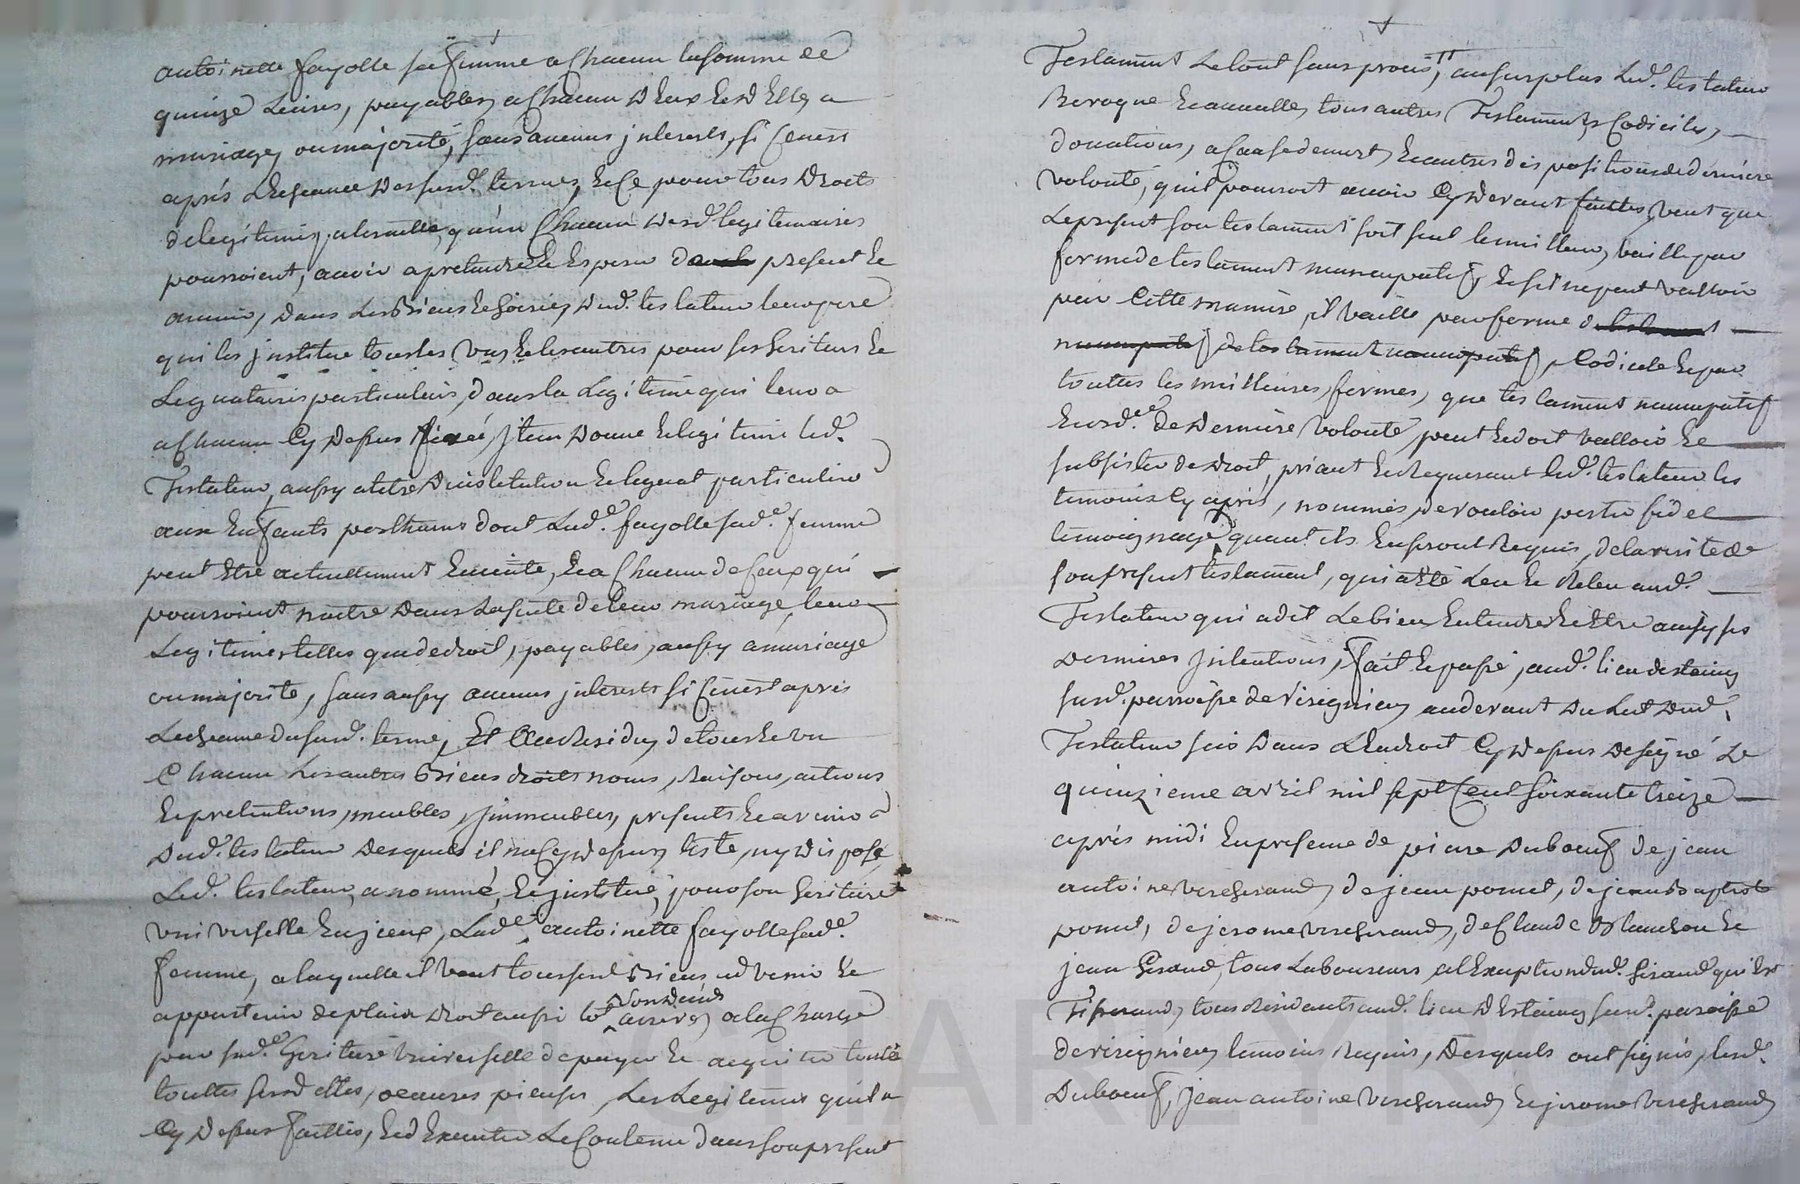 antoinette fayolle sa femme a chacun la somme de
quinze Livres, payables a chacun d'Eux Lesd Elles a
mariage, ou majorité, sans aucuns jnterests, si cenest
aprés L'Escheance des susd.s termes, Et Ce pour tous Droits
de legitimes, paternelle, qu'un Chacun desd. legitimaires
pourroient, avoir a pretendre Et Esperer present Et
avenir, Dans Les Biens Et hoiries Dud. testateur leur pere
qui les jnstitue tous les uns Et les autres pour ses heritiers Et
Legataires particuliers, dans la Legitime qui leur a
a Chacun Cy Dessus fixée, jtem Donne Et legitime led.
Testateur, aussy a titre D'institution Et legat particulier
aux Enfants posthumes dont Lad.e fayolle sad.e femme
peut Etre actuellement Enceinte, Et a Chacun de Ceux qui
pourroient naitre Dans La suite de leur mariage, leur
Legitimes telles que de droit, payables, aussy a mariage
ou majorité, sans aussy aucuns jnterests si Cenest aprés
Lecheance du susd. terme, Et Au Residu, de tous Et un
Chacun Les autres Biens droits noms, Raisons, actions
Et pretentions, meubles, jmmeubles, presents Et avenir
Dud. testateur Desquels il na Cy dessus testé, ny disposé,
Led. testateur, a nommé, Et jnstitué, pour son heritiere
universelle En jceux, Lad.e antoinette fayolle sad.e
femme, a laquelle il veut tous sesd Biens advenir Et
appartenir de plain droit aussi tot son deceds arrivé, a la Charge
par sad.e heritiere universelle de payer Et acquitter toute
touttes sesd dettes, oeuvres pieuses, Les Legitimes quil a
Cy Dessus faittes, Et d'Executer Le Contenu dans son present
Testament Le tout sans procés, au surplus Led. testateur
Revoque Et annulle, tous autres Testaments, Codiciles,
donations, a Cause de mort, Et autres dispositions de derniere
volonté, qu'il pourroit avoir Cy devant faittes, veut que
Le present son testament soit seul le meilleur, vaille par
forme de testament nuncupatif, Et s'il ne peut valloir
par Cette maniere, il vaille par forme
de testament nuncupatif, Codicile Et par
touttes les meilleures formes, que testament nuncupatif
Et ord.ce de Derniere volonté, peut Et doit valloir Et
subsister de droit, priant Et Requerant led. testateur les
temoins Cy aprés, nommés, de vouloir porter fidel
temoignage, quant ils En seront Requis, de la verité de
son present testament, qui a Eté Leu Et Releu aud.
Testateur qui a dit Le bien Entendre Et Etre ainsy ses
Dernieres jntentions, fait Et passé, aud. lieu destaing
susd. parroisse de Visignieu, au devant Du Lit Dud.
Testateur sis Dans L'Endroit Cy Dessus Designé Le
quinzieme avril mil sept Cent soixante treize
aprés midi En presence de pierre Duboeuf de jean
antoine vercherand, de jean pomet, de jean baptiste
pomet, de jerome vercherand, de Claude Blanchon Et
jean Giraud, tous Laboureurs, a l'Exception dud. Giraud qui Est
Tisserand, tous Residants aud. lieu D'Estaing susd. paroisse
de visignieu, temoins Requis, Desquels ont signés, lesd.
Duboeuf, jean antoine vercherand, Et jerome vercherand
CHAREYRON